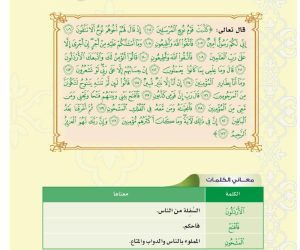 قال تعالى: ﴿كَذَّبَتْ قَوْمُ نُوحٍ الْمُرْسَلِينَ ﴿١٠٥﴾ إِذْ قَالَ لَهُمْ أَخُوهُمْ نُوحٌ أَلَا تَتَّقُونَ ﴿١٠٦﴾
إِنِّي لَكُمْ رَسُولٌ أَمِينٌ ﴿١٠٧﴾ فَاتَّقُوا اللَّهَ وَأَطِيعُونِ ﴿١٠٨﴾ وَمَا أَسْأَلُكُمْ عَلَيْهِ مِنْ أَجْرٍ إِنْ أَجْرِيَ إِلَّا
عَلَى رَبِّ الْعَالَمِينَ ﴿١٠٩﴾ فَاتَّقُوا اللَّهَ وَأَطِيعُونِ ﴿١١٠﴾ قَالُوا أَنُؤْمِنُ لَكَ وَاتَّبَعَكَ الْأَرْذَلُونَ ﴿١١١﴾
قَالَ وَمَا عِلْمِي بِمَا كَانُوا يَعْمَلُونَ ﴿١١٢﴾ إِنْ حِسَابُهُمْ إِلَّا عَلَى رَبِّي لَوْ تَشْعُرُونَ ﴿١١٣﴾
وَمَا أَنَا بِطَارِدِ الْمُؤْمِنِينَ ﴿١١٤﴾ إِنْ أَنَا إِلَّا نَذِيرٌ مُبِينٌ ﴿١١٥﴾ قَالُوا لَئِنْ لَمْ تَنْتَهِ يَا نُوحُ لَتَكُونَنَّ
مِنَ الْمَرْجُومِينَ ﴿١١٦﴾ قَالَ رَبِّ إِنَّ قَوْمِي كَذَّبُونِ ﴿١١٧﴾ فَافْتَحْ بَيْنِي وَبَيْنَهُمْ فَتْحًا وَنَجِّنِي وَمَنْ
مَعِيَ مِنَ الْمُؤْمِنِينَ ﴿١١٨﴾ فَأَنْجَيْنَاهُ وَمَنْ مَعَهُ فِي الْفُلْكِ الْمَشْحُونِ ﴿١١٩﴾ ثُمَّ أَغْرَقْنَا بَعْدُ
الْبَاقِينَ ﴿١٢٠﴾ إِنَّ فِي ذَلِكَ لَآيَةً وَمَا كَانَ أَكْثَرُهُمْ مُؤْمِنِينَ ﴿١٢١﴾ وَإِنَّ رَبَّكَ لَهُوَ الْعَزِيزُ
الرَّحِيمُ ﴿١٢٢﴾
معاني الكلمات
الكلمة معناها
الْأَرْذَلُونَ السَّفَلة من الناس.
فَافْتَحْ فاحكم.
الْمَشْحُونِ المملوء بالناس والدواب والمتاع.